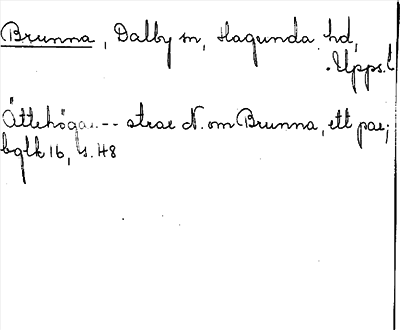 Brunna, Dalby sn, Hagunda hd,
Upps.l
Ättehögar -- strax N. om Brunna, ett par;
bglk 16, s. 48